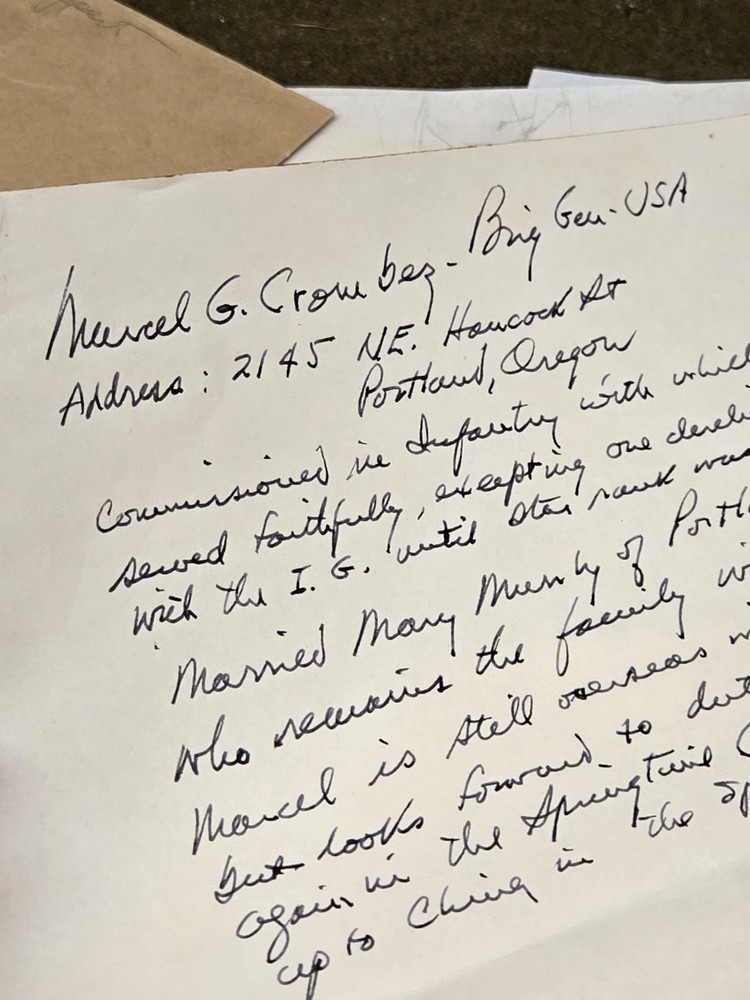 Marcel G. Crombez - Brig Gen. USA
Address : 2145 NE. Hancock St
Portland, Oregon
Commissioned in Infantry with which
served faithfully, excepting one
with the I. G. until star rank was
Married Mary Munly of
who remains the family
Marcel is still overseas
but looks forward to
again in the Springtime
up to China in the